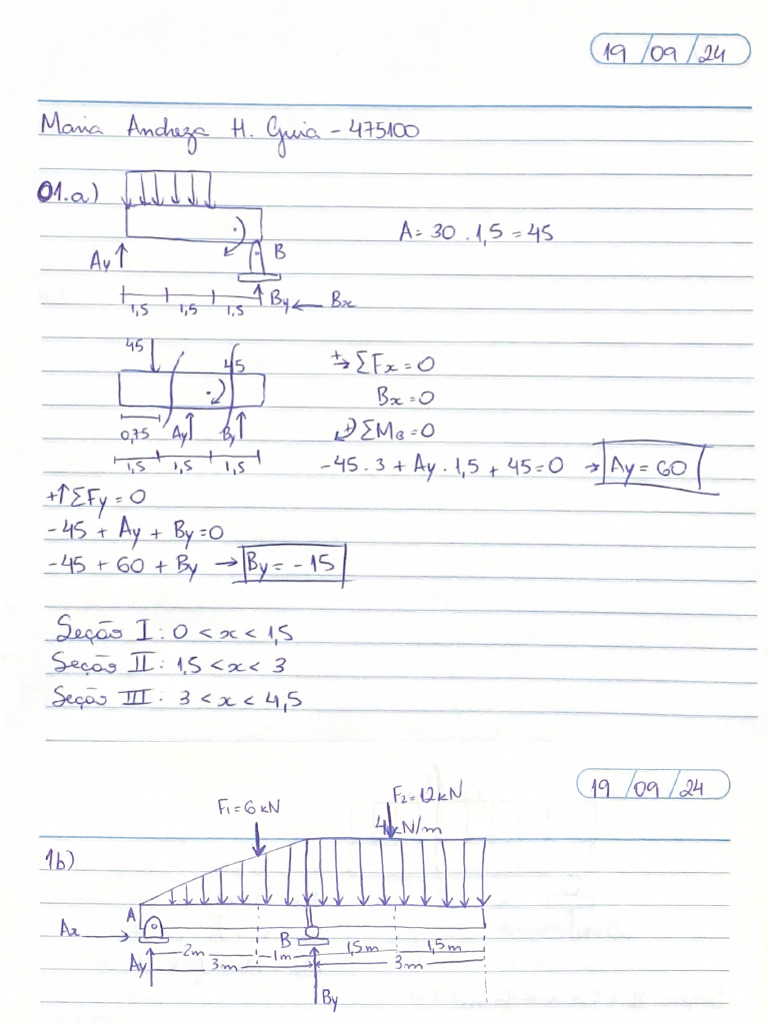 19/09/24
Maria Andreza H. Guia - 475100
01.a)
A = 30 . 1,5 = 45
Ay B
1,5 1,5 1,5 By Bx
45 45
+→ ΣFx = 0
Bx = 0
0,75 Ay By
+ ΣMB = 0
1,5 1,5 1,5
-45 . 3 + Ay . 1,5 + 45 = 0 → Ay = 60
+↑ ΣFy = 0
-45 + Ay + By = 0
-45 + 60 + By → By = - 15
Seção I : 0 < x < 1,5
Seção II : 1,5 < x < 3
Seção III : 3 < x < 4,5
19/09/24
F1 = 6 kN F2 = 12 kN
4 kN/m
1b)
A
Ax B
2m 1m 1,5m 1,5m
Ay 3m 3m
By